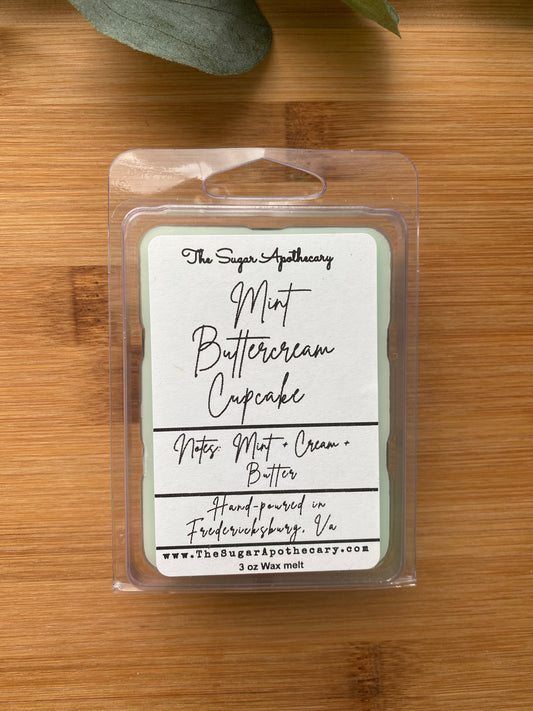 The Sugar Apothecary
Mint
Buttercream
Cupcake
Notes: Mint + Cream +
Butter
Hand-poured in
Fredericksburg, Va
www.TheSugarApothecary.com
3 oz Wax melt